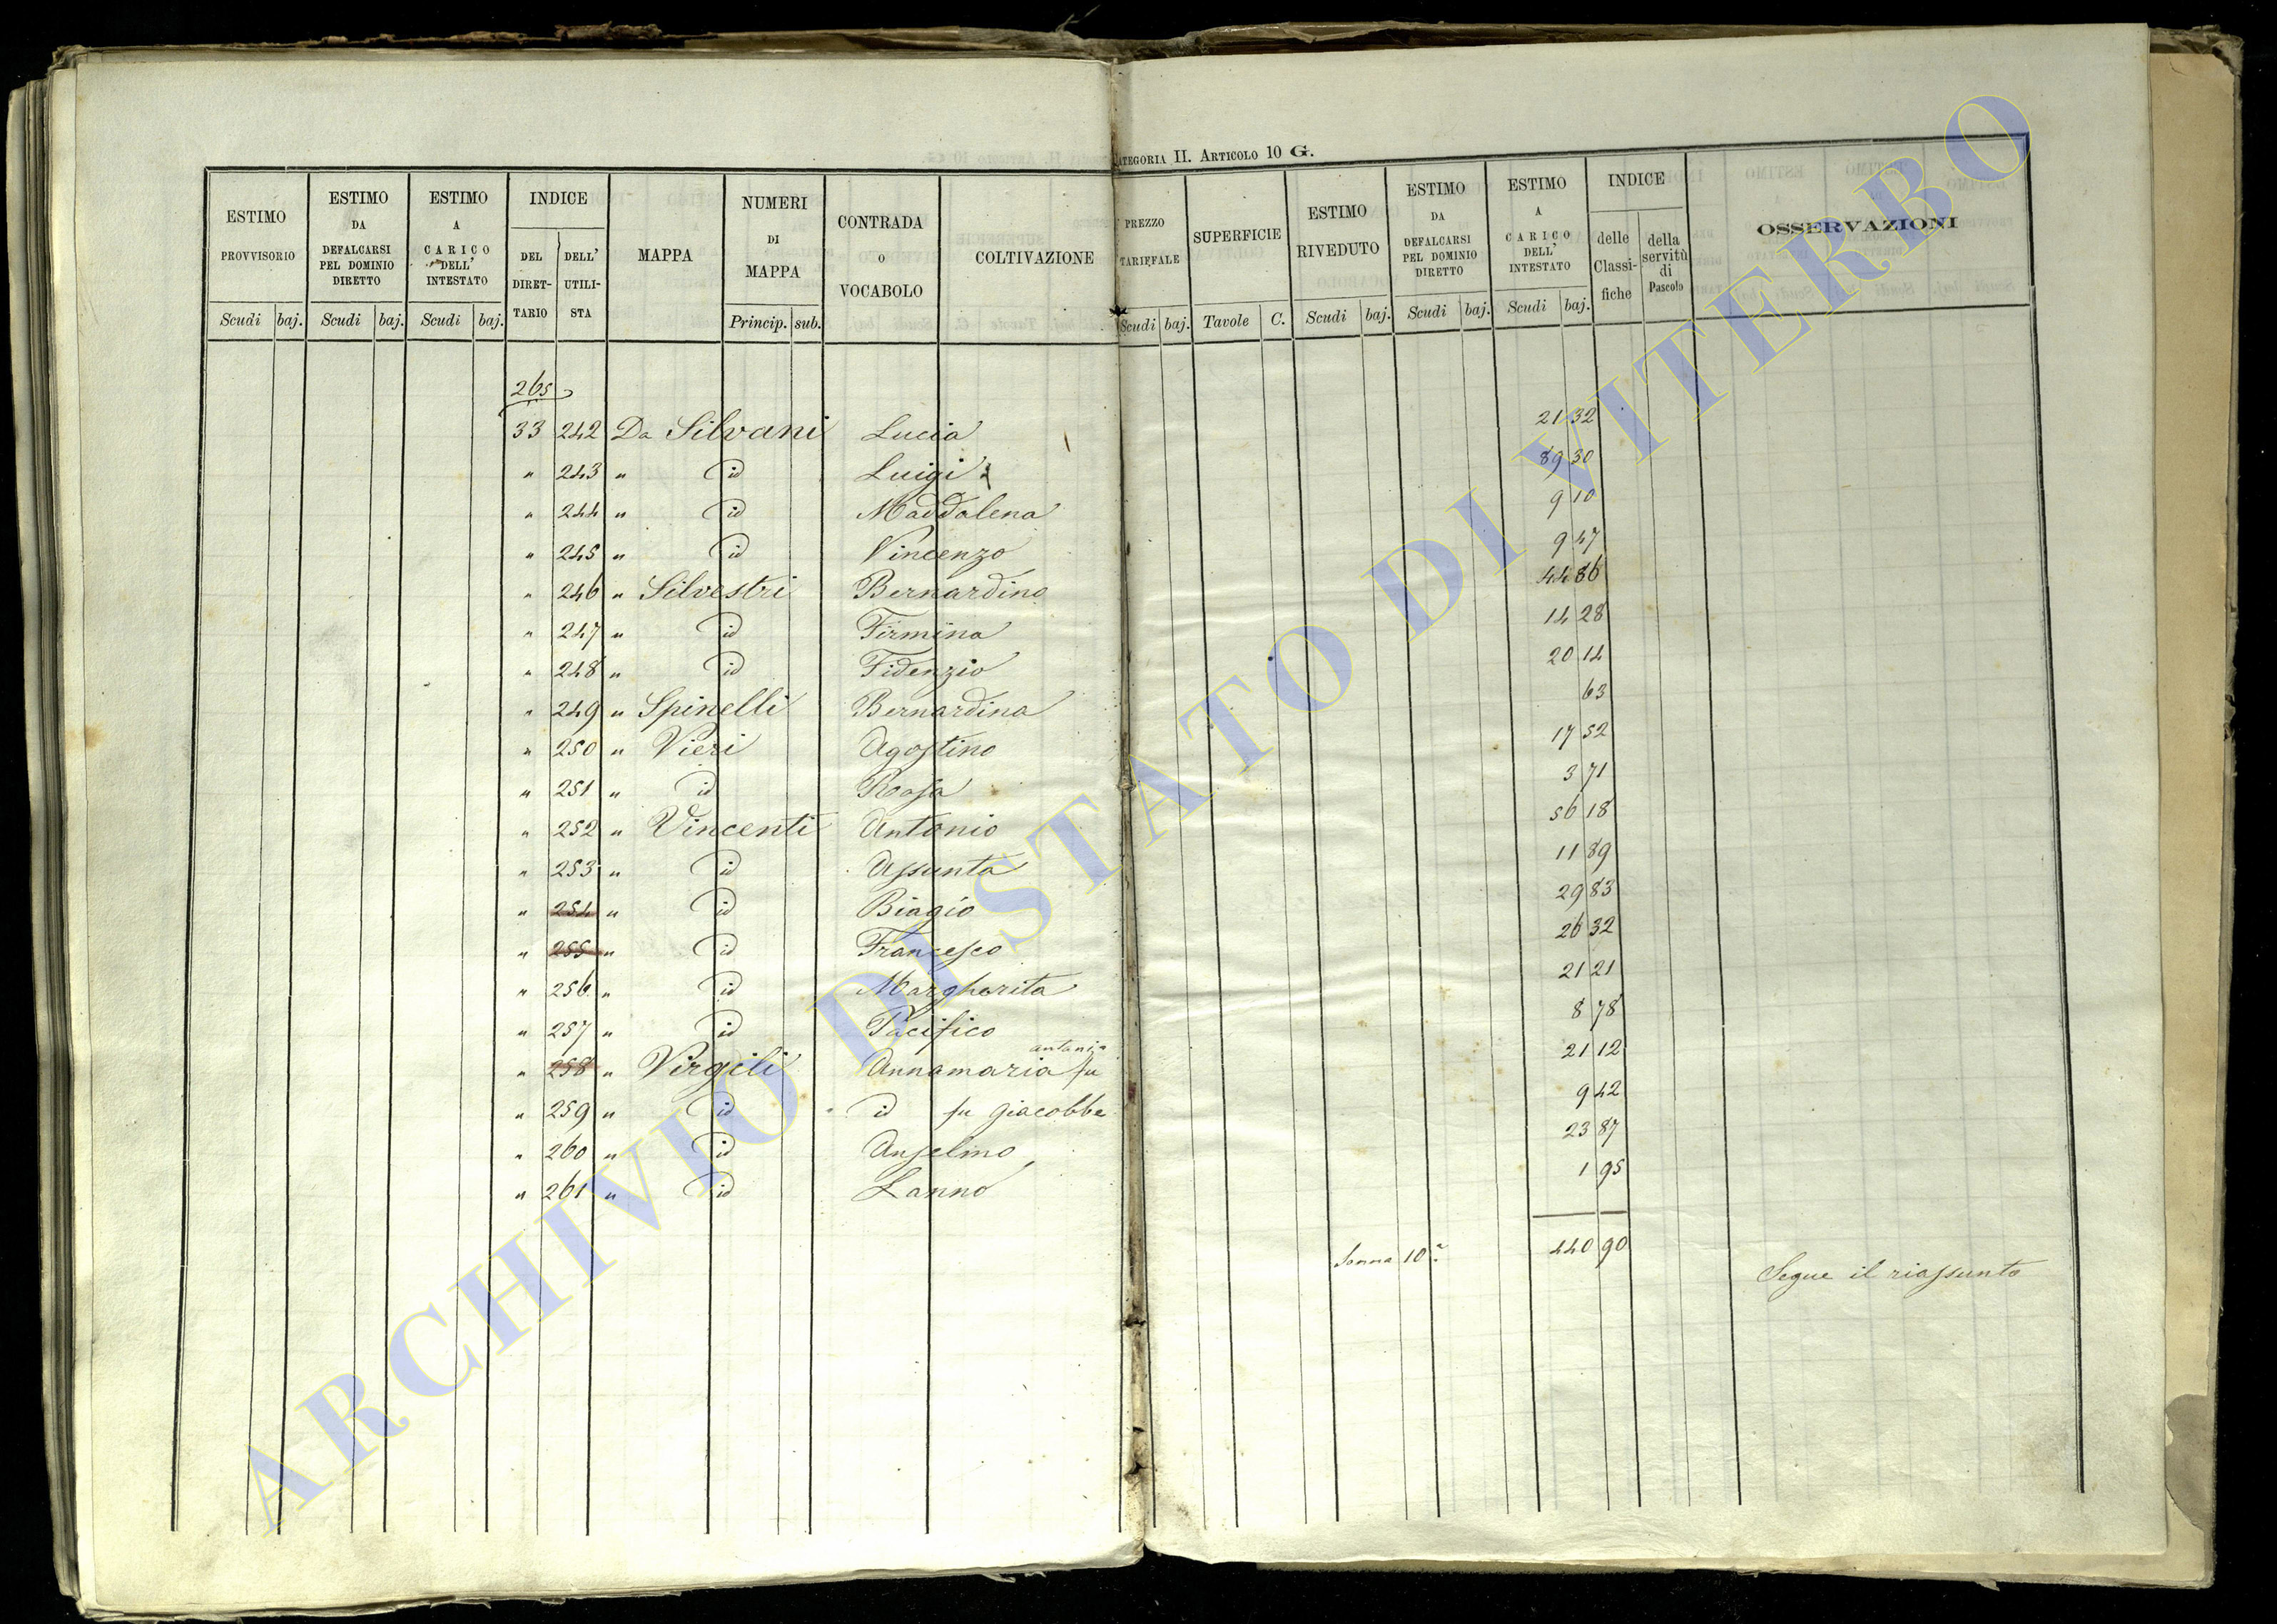 CATEGORIA II. ARTICOLO 10 G.
ESTIMO PROVVISORIO Scudi baj.
ESTIMO DA DEFALCARSI PEL DOMINIO DIRETTO Scudi baj.
ESTIMO A CARICO DELL' INTESTATO Scudi baj.
INDICE DEL DIRETTARIO DELL' UTILISTA
MAPPA
NUMERI DI MAPPA Princip. sub.
CONTRADA O VOCABOLO
COLTIVAZIONE
PREZZO TARIFFALE Scudi baj.
SUPERFICIE Tavole C.
ESTIMO RIVEDUTO Scudi baj.
ESTIMO DA DEFALCARSI PEL DOMINIO DIRETTO Scudi baj.
ESTIMO A CARICO DELL' INTESTATO Scudi baj.
INDICE delle Classifiche della servitù di Pascolo
OSSERVAZIONI
265
33 242 Da Silvani Lucia 21 32
" 243 " id Luigi 89 30
" 244 " id Maddalena 9 10
" 245 " id Vincenzo 9 47
" 246 " Silvestri Bernardino 44 86
" 247 " id Firmina 14 28
" 248 " id Fidenzio 20 14
" 249 " Spinelli Bernardina 63
" 250 " Vieri Agostino 17 52
" 251 " id Rosa 3 71
" 252 " Vincenti Antonio 56 18
" 253 " id Assunta 11 89
" 254 " id Biagio 29 83
" 255 " id Francesco 26 32
" 256 " id Margherita 21 21
" 257 " id Pacifico 8 78
" 258 " Virgili Annamaria fu antonio 21 12
" 259 " id id fu giacobbe 9 42
" 260 " id Anselmo 23 87
" 261 " id Lanno 1 95
Somma 10ª 440 90
Segue il riassunto
ARCHIVIO DI STATO DI VITERBO